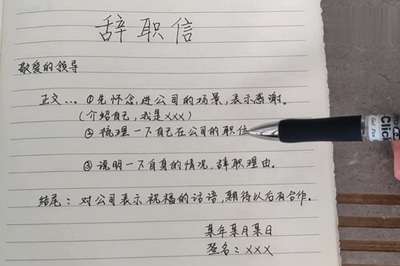 辞职信
敬爱的领导
正文… ①先怀念,进公司的场景,表示感谢。
(介绍自己,我是XXX)
②梳理一下自在公司的职位
③说明一下自真的情况,辞职理由。
结尾:对公司表示祝福的话语,期待以后有合作。
某年某月某日
签名:XXX
Click
Gel Pen